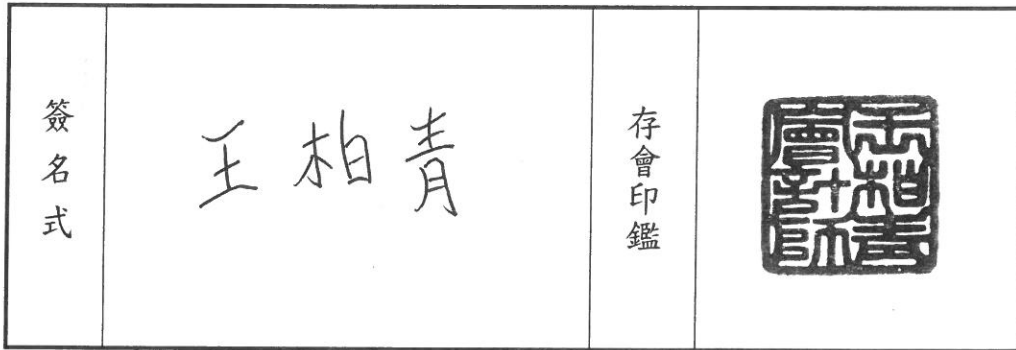 簽名式
王柏青
存會印鑑
王柏青
會計師